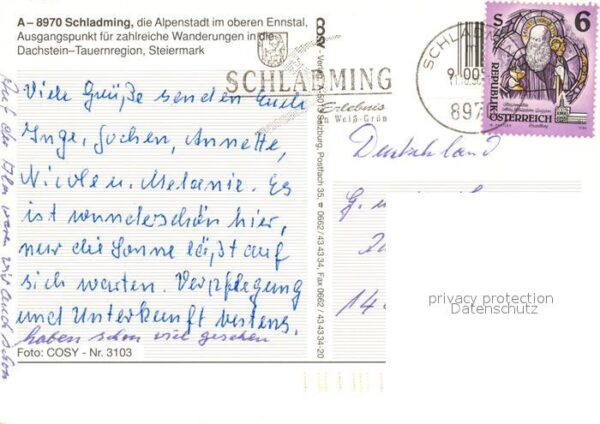 A – 8970 Schladming, die Alpenstadt im oberen Ennstal,
Ausgangspunkt für zahlreiche Wanderungen in die
Dachstein–Tauernregion, Steiermark
Viele Grüße senden Euch
Inge, Jochen, Annette,
Nicole u. Melanie. Es
ist wunderschön hier,
nur die Sonne läßt auf
sich warten. Verpflegung
und Unterkunft bestens.
haben schon viel gesehen
Auf der Alm waren wir auch schon
Foto: COSY - Nr. 3103
COSY - Verlag, A-5019 Salzburg, Postfach 35, ☎ 0662/43 4334, Fax 0662/43 4334-20
SCHLADMING
Erlebnis
in Weiß-Grün
SCHLADMING
897
S 6
REPUBLIK
ÖSTERREICH
Deutschland
G.
14
privacy protection
Datenschutz